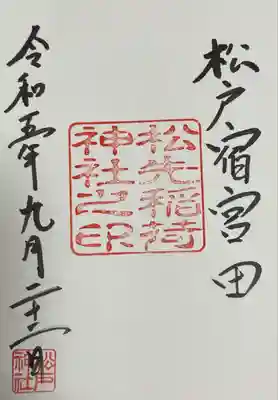 松戸宿宮田
松先稲荷
神社之印
令和五年九月二十二日
松戸
神社